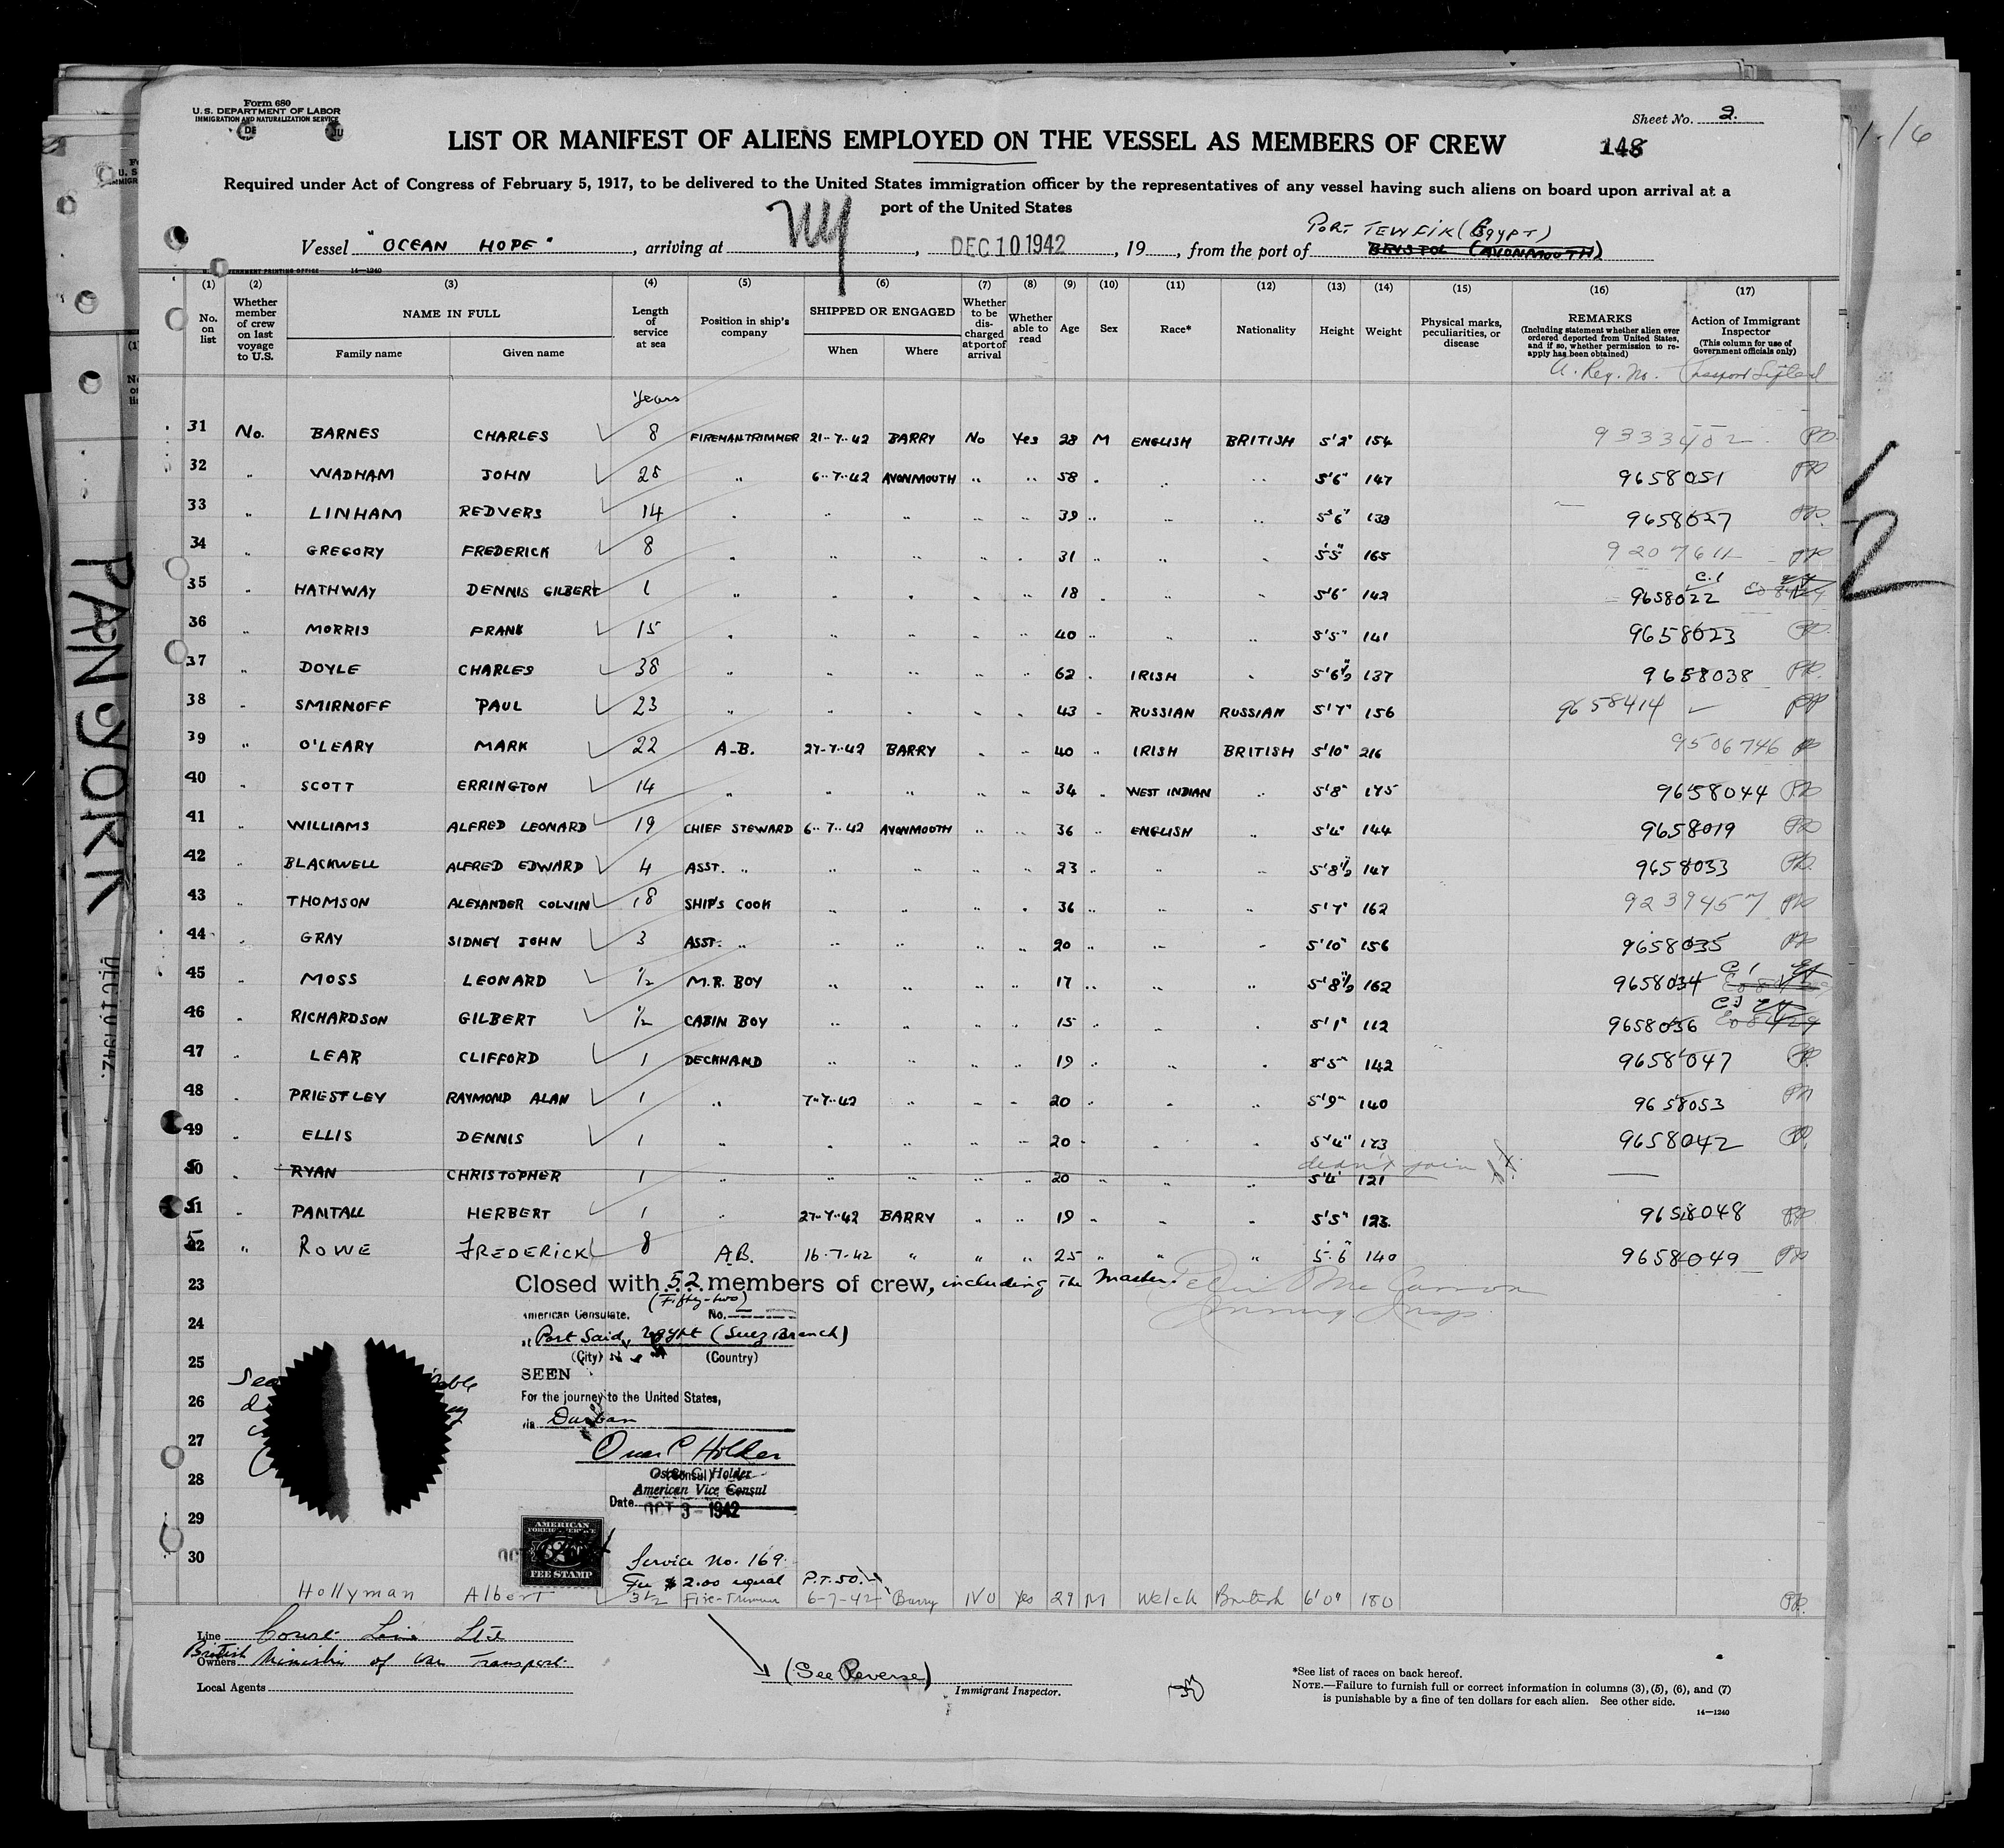 Form 680
U.S. DEPARTMENT OF LABOR
IMMIGRATION AND NATURALIZATION SERVICE
Sheet No. 2.
LIST OR MANIFEST OF ALIENS EMPLOYED ON THE VESSEL AS MEMBERS OF CREW
148
Required under Act of Congress of February 5, 1917, to be delivered to the United States immigration officer by the representatives of any vessel having such aliens on board upon arrival at a
port of the United States
PORT TEWFIK (EGYPT)
Vessel "OCEAN HOPE", arriving at NY, DEC 10 1942, 19, from the port of BRISTOL (AVONMOUTH)
14—1240
(1) (2) (3) (4) (5) (6) (7) (8) (9) (10) (11) (12) (13) (14) (15) (16) (17)
No. on list
Whether member of crew on last voyage to U.S.
NAME IN FULL
Family name Given name
Length of service at sea
Position in ship's company
SHIPPED OR ENGAGED
When Where
Whether to be discharged at port of arrival
Whether able to read
Age
Sex
Race*
Nationality
Height
Weight
Physical marks, peculiarities, or disease
REMARKS
(Including statement whether alien ever ordered deported from United States, and if so, whether permission to re-apply has been obtained)
Action of Immigrant Inspector
(This column for use of Government officials only)
A. Reg. No.
Years
31 No. BARNES CHARLES 8 FIREMAN TRIMMER 21-7-42 BARRY No Yes 28 M ENGLISH BRITISH 5'2" 154 9333402
32 " WADHAM JOHN 28 " 6-7-42 AVONMOUTH " " 58 " " " 5'6" 147 9658051
33 " LINHAM REDVERS 14 " " " " " 39 " " " 5'6" 138 9658027
34 " GREGORY FREDERICK 8 " " " " " 31 " " " 5'5" 165 9207611
35 " HATHWAY DENNIS GILBERT 1 " " " " " 18 " " " 5'6" 142 9658022 C.1
36 " MORRIS FRANK 15 " " " " " 40 " " " 5'5" 141 9658023
37 " DOYLE CHARLES 38 " " " " " 62 " IRISH " 5'6½" 137 9658038
38 " SMIRNOFF PAUL 23 " " " " " 43 " RUSSIAN RUSSIAN 5'7" 156 9658414
39 " O'LEARY MARK 22 A-B. 27-7-42 BARRY " " 40 " IRISH BRITISH 5'10" 216 9506746
40 " SCOTT ERRINGTON 14 " " " " " 34 " WEST INDIAN " 5'8" 175 9658044
41 " WILLIAMS ALFRED LEONARD 19 CHIEF STEWARD 6-7-42 AVONMOUTH " " 36 " ENGLISH " 5'4" 144 9658019
42 " BLACKWELL ALFRED EDWARD 4 ASST. " " " " " 23 " " " 5'8½" 147 9658033
43 " THOMSON ALEXANDER COLVIN 18 SHIP'S COOK " " " " 36 " " " 5'7" 162 9239457
44 " GRAY SIDNEY JOHN 3 ASST. " " " " " 20 " " " 5'10" 156 9658035
45 " MOSS LEONARD ½ M.R. BOY " " " " 17 " " " 5'8½" 162 9658034 C.1
46 " RICHARDSON GILBERT ½ CABIN BOY " " " " 15 " " " 5'1" 112 9658036
47 " LEAR CLIFFORD 1 DECKHAND " " " " 19 " " " 5'5" 142 9658047
48 " PRIESTLEY RAYMOND ALAN 1 " 7-7-42 " " " 20 " " " 5'9" 140 9658053
49 " ELLIS DENNIS 1 " " " " " 20 " " " 5'4" 123 9658042
50 " RYAN CHRISTOPHER 1 " " " " " 20 " " " 5'4" 121 didn't join
51 " PANTALL HERBERT 1 " 27-7-42 BARRY " " 19 " " " 5'5" 123 9658048
52 " ROWE FREDERICK 8 A.B. 16-7-42 " " " 25 " " " 5'6" 140 9658049
23 Closed with 52 members of crew, including the Master.
(Fifty-two)
American Consulate. No.
24
at Port Said, Egypt (Suez Branch)
(City) (Country)
25
SEEN
26 For the journey to the United States,
via Durban
27
28 Oscar C. Holder
(Consul)
American Vice Consul
Date OCT 3 - 1942
29
AMERICAN FOREIGN SERVICE
FEE STAMP
30
Service No. 169.
Fee $2.00 equal P.T. 50.
Hollyman Albert 3½ Fire-Trimmer 6-7-42 Barry No Yes 29 M Welch British 6'0" 180
Line Court Line Ltd
Owners British Ministry of War Transport
Local Agents
(See Reverse)
Immigrant Inspector.
*See list of races on back hereof.
NOTE.—Failure to furnish full or correct information in columns (3), (5), (6), and (7)
is punishable by a fine of ten dollars for each alien. See other side.
14—1240
PAN YORK
DEC 10 1942
12